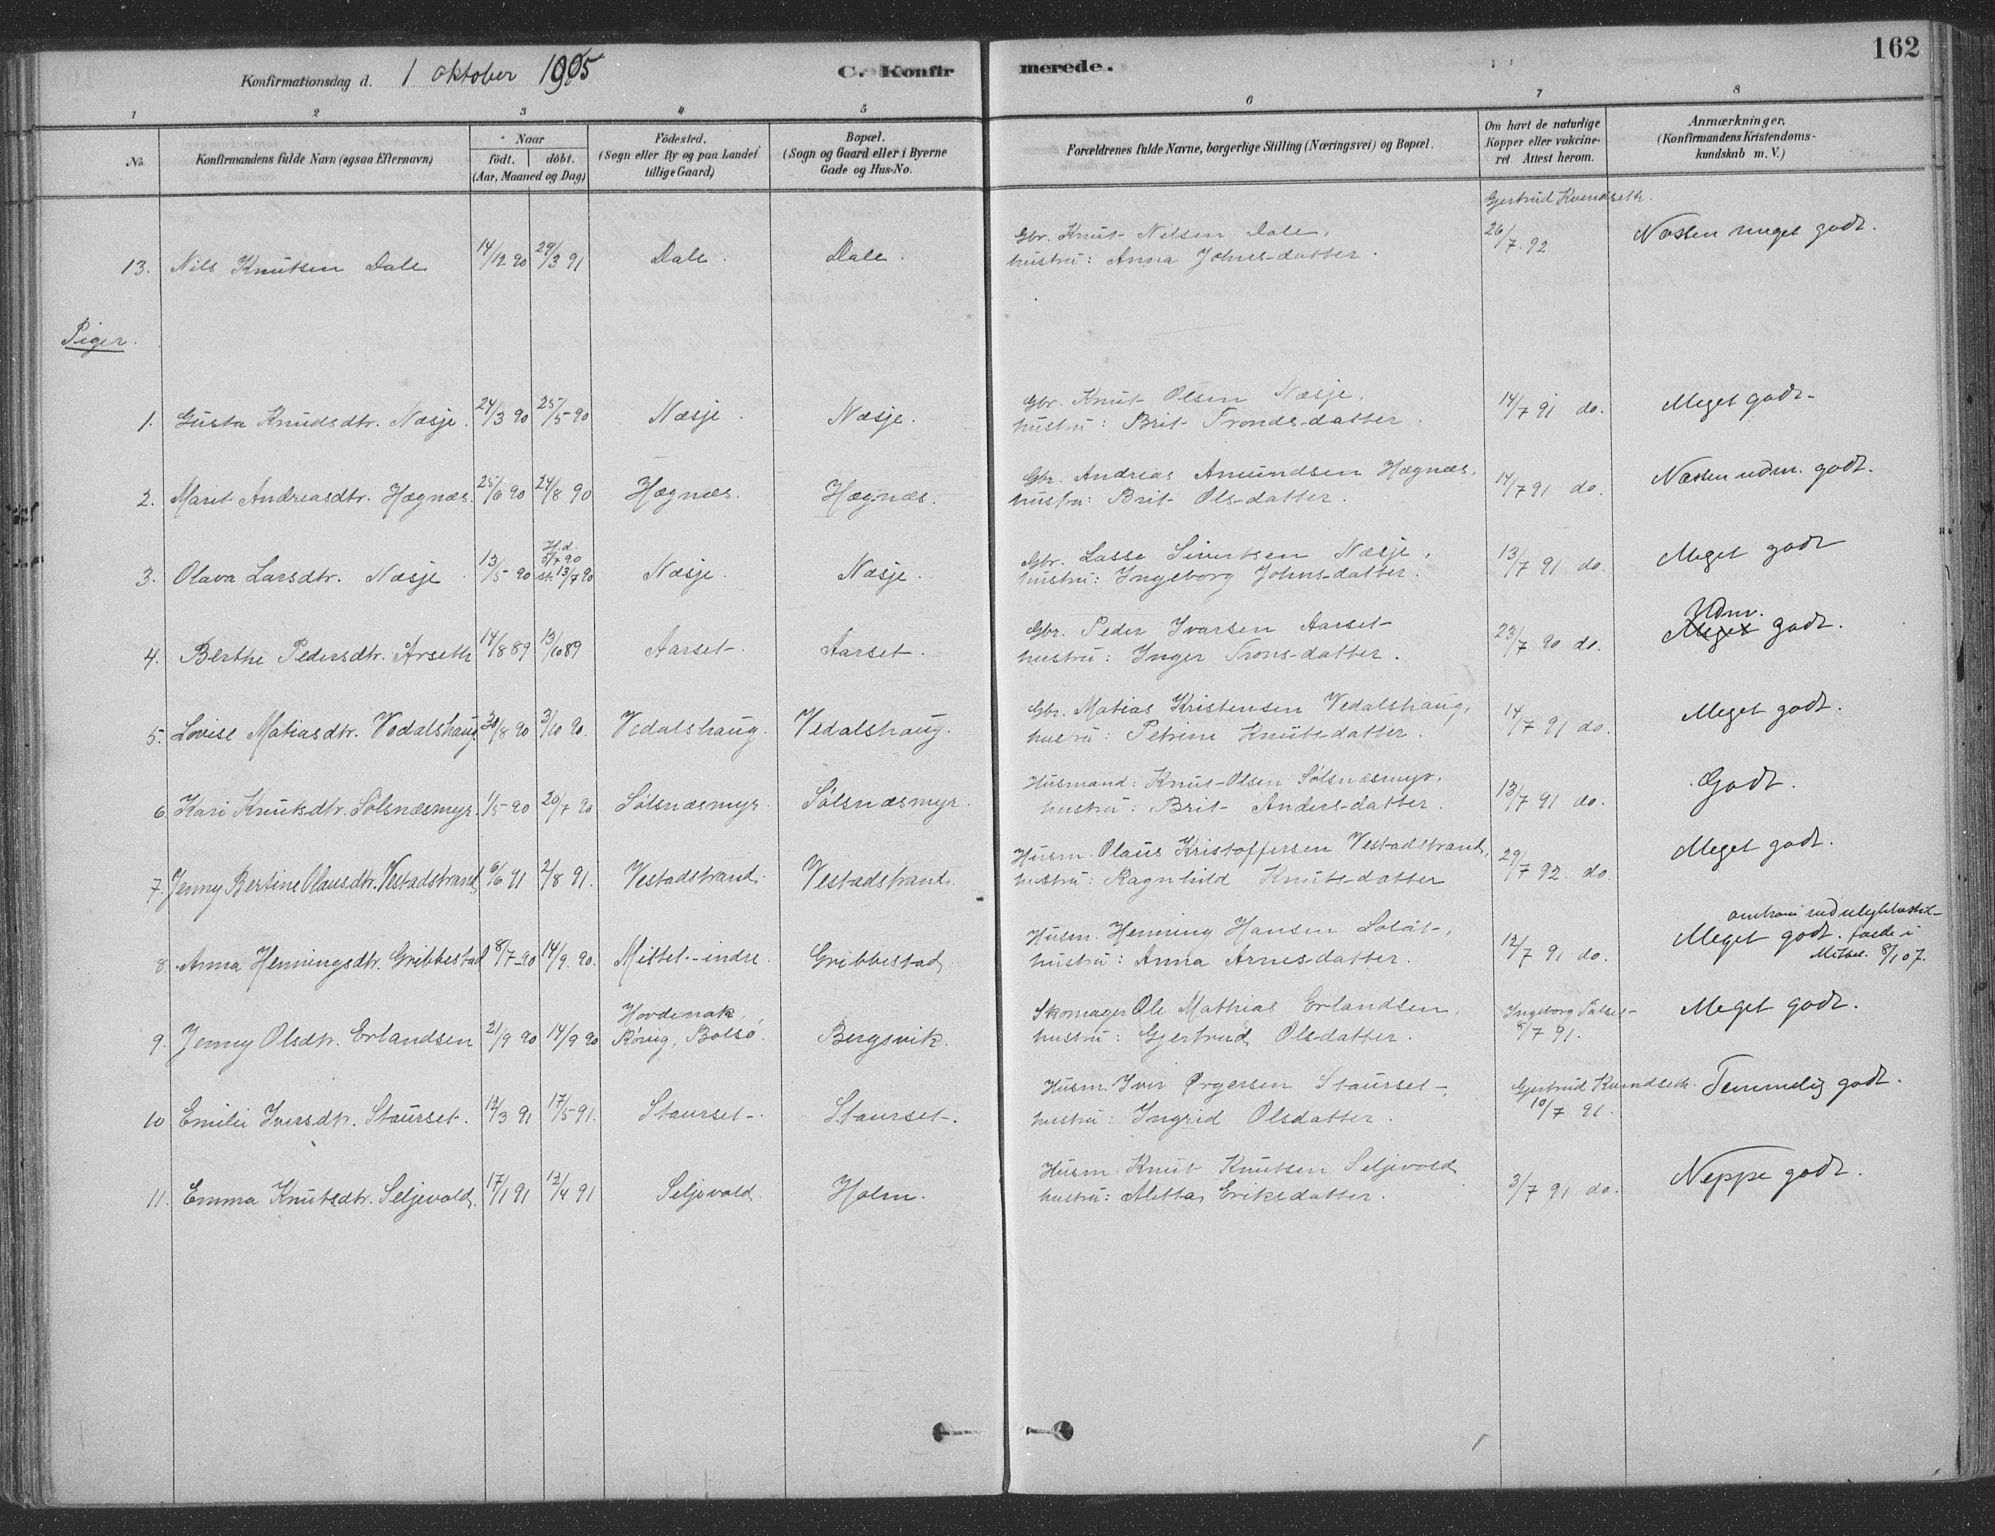 162
Konfirmationsdag d. 1 oktober 1905
C. Konfirmerede.
1 2 3 4 5 6 7 8
No.
Konfirmandens fulde Navn (ogsaa Efternavn)
Naar
födt. döbt.
(Aar, Maaned og Dag)
Födested.
(Sogn eller By og paa Landet
tillige Gaard)
Bopæl.
(Sogn og Gaard eller i Byerne
Gade og Hus-No.
Forældrenes fulde Navne, borgerlige Stilling (Næringsvei) og Bopæl.
Om havt de naturlige
Kopper eller vakcine-
ret. Attest herom.
Anmærkninger.
(Konfirmandens Kristendoms-
kundskab m. V.)
Gjertrud Kvendseth.
13. Nils Knutsen Dale 14/12 90 29/3 91 Dale. Dale. Gbr. Knut Nilsen Dale, 26/7 92 Næsten meget godt.
hustru: Anna Johnsdatter.
Piger.
1. Gusta Knudsdtr. Næsje. 24/3 90 25/5 90 Næsje. Næsje. Gbr. Knut Olsen Næsje, 14/7 91 do. Meget godt.
hustru: Brit Trondsdatter.
2. Marit Andreasdtr. Hægnæs. 25/6 90 24/8 90 Hægnæs. Hægnæs. Gbr. Andreas Amundsen Hægnæs, 14/7 91 do. Næsten udm. godt.
hustru: Brit Olsdatter.
3. Olava Larsdtr. Næsje. 13/5 90 Hj.d. 5/7 90 st. 13/7 90 Næsje. Næsje. Gbr. Lasse Sivertsen Næsje, 13/7 91 do. Meget godt
hustru: Ingeborg Johnsdatter.
4. Berthe Pedersdtr. Årseth 14/8 89 13/10 89 Aarset. Aarset. Gbr. Peder Ivarsen Aarset 23/7 90 do. Udm. Meget godt.
hustru: Inger Tronsdatter.
5. Lovise Matiasdtr. Vedalshaug. 30/8 90 3/10 90. Vedalshaug. Vedalshaug. Gbr. Matias Kristensen Vedalshaug, 14/7 91 do. Meget godt.
hustru: Petrine Knutsdatter.
6. Kari Knutsdtr. Sølsnæsmyr. 1/5 90 20/7 90 Sølsnæsmyr. Sølsnæsmyr. Husmand: Knut Olsen Sølsnæsmyr. 13/7 91 do. Godt.
hustru: Brit Andersdatter.
7. Jenny Bertine Olausdtr. Vestadstrand 6/6 91 2/8 91. Vestadstrand. Vestadstrand. Husm. Olaus Kristoffersen Vestadstrand, 29/7 92. do. Meget godt.
hustru: Ragnhild Knutsdatter
8. Anna Henningsdtr. Gribbestad 8/7 90 14/9 90. Mittet indre. Gribbestad Husm. Henning Hansen 12/7 91 do. Meget godt. omkom ved ulykkestil-
hustru: Anna Arnesdatter. fælde i
8/1 07.
9. Jenny Olsdtr. Erlandsen 21/9 90 14/9 90 Hovdenak, Bolsø. Bergsvik. Skomager Ole Mathias Erlandsen, Ingeborg 8/7 91. Meget godt.
hustru: Gjertrud Olsdatter.
10 Emilie Iversdtr. Staurset. 12/3 91 17/5 91. Staurset. Staurset. Husm. Iver Staurset, Gjertrud Kvendseth. 10/7 91. Temmelig godt.
hustru: Ingrid Olsdatter.
11. Emma Knutsdtr. Seljevold, 17/1 91 12/4 91 Seljevold Holm. Husm. Knut Knutsen Seljevold 3/7 91 do. Neppe godt.
hustru: Aletta Eriksdatter.